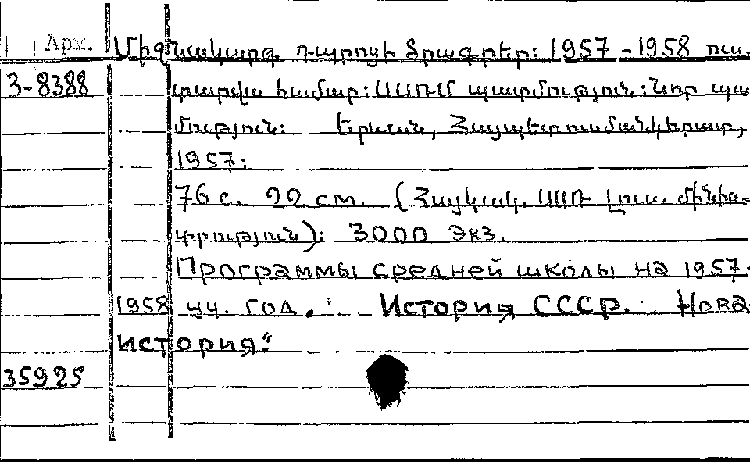 Арх. Միջնակարգ դպրոցի ծրագրեր: 1957-1958 ուս.
3-8388 տարվա համար: ՍՍՌՄ պատմություն: Նոր պա
մություն: Երևան, Հայպետուսմանկհրատ,
1957:
76 с. 22 см. (Հայկակ. ՍՍՌ Լուս. մինիս-
տրություն): 3000 экз.
Программы средней школы на 1957-
1958 уч. год. История СССР. Нова
история."
35925